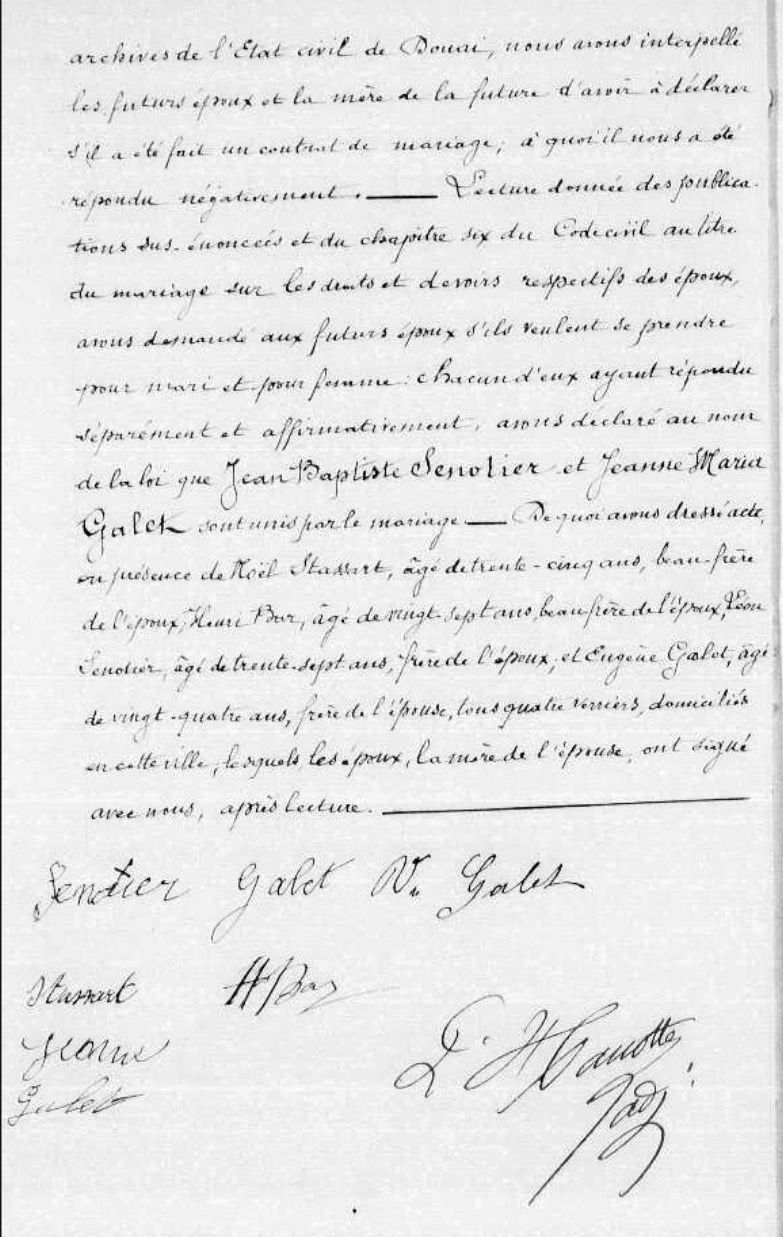 archives de l'Etat civil de Douai, nous avons interpellé
les futurs époux et la mère de la future d'avoir à déclarer
s'il a été fait un contrat de mariage; à quoi il nous a été
répondu négativement. — Lecture donnée des publica-
tions sus-énoncées et du chapitre six du Code civil au titre
du mariage sur les droits et devoirs respectifs des époux,
avons demandé aux futurs époux s'ils veulent se prendre
pour mari et pour femme: chacun d'eux ayant répondu
séparément et affirmativement, avons déclaré au nom
de la loi que Jean Baptiste Senotier et Jeanne Maria
Galet sont unis par le mariage. — De quoi avons dressé acte,
en présence de Noël Stassart, âgé de trente-cinq ans, beau-frère
de l'époux, Henri Bar, âgé de vingt-sept ans, beau frère de l'époux, Léon
Senotier, âgé de trente-sept ans, frère de l'époux, et Eugène Galet, âgé
de vingt-quatre ans, frère de l'épouse, tous quatre verriers, domiciliés
en cette ville, lesquels, les époux, la mère de l'épouse, ont signé
avec nous, après lecture. —
Senotier Galet Ve Galet
Stassart HBar
Galet